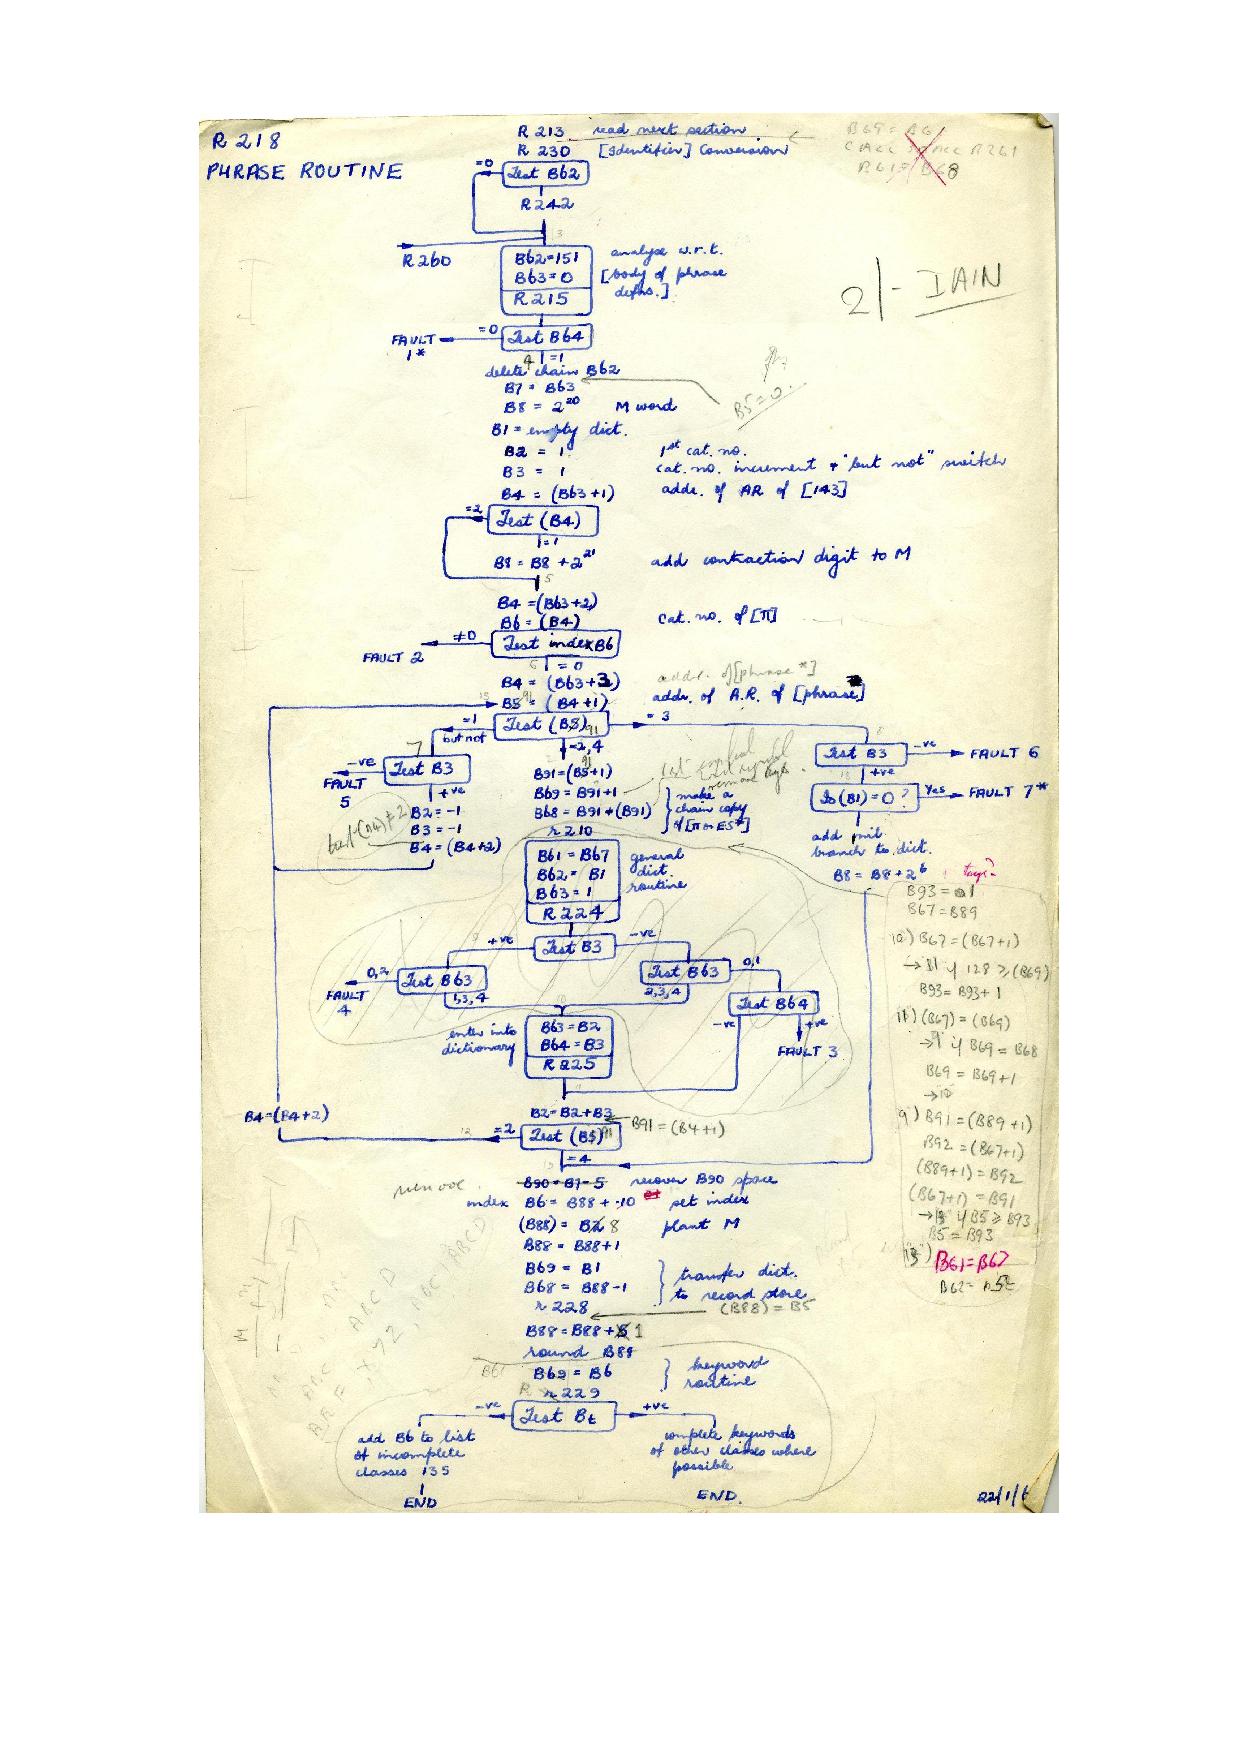 R 218
PHRASE ROUTINE
R 213 read next section
R 230 [Identifier] Conversion
=0
Test B62
R242
R260
B62=151
B63=0
R215
analyse w.r.t.
[body of phrase
defns.]
2/- IAIN
FAULT
1*
=0
Test B64
=1
delete chain B62
B7 = B63
B5=0
B8 = 2^20 M word
B1 = empty dict.
B2 = 1 1st cat. no.
B3 = 1 cat. no. increment + "but not" switch
B4 = (B63+1) addr. of AR of [143]
=2
Test (B4)
=1
B8 = B8 + 2^21 add contraction digit to M
5
B4 = (B63+2)
B6 = (B4) cat. no. of [π]
≠0
Test index B6
FAULT 2
= 0
addr. of [phrase*]
B4 = (B63+3) addr. of A.R. of [phrase]
B5 = (B4+1)
91
=1
but not
Test (B5)
91
= 3
=2,4
-ve
Test B3
FAULT
5
+ve
Test B3
-ve
FAULT 6
+ve
B2 = -1
B3 = -1
B4 = (B4+2)
B91 = (B5+1)
B69 = B91+1
B68 = B91+(B91)
r 210
make a
chain copy
of [π or ES*]
Is (B1) = 0?
Yes
FAULT 7*
add nil
branch to dict.
B8 = B8 + 2^6
B61 = B67
B62 = B1
B63 = 1
R 224
general
dict.
routine
B93 = 1
B67 = B89
10) B67 = (B67+1)
→11 if 128 ≥ (B69)
B93 = B93 + 1
11) (B67) = (B69)
→9 if B69 = B68
B69 = B69+1
→10
9) B91 = (B89+1)
B92 = (B67+1)
(B89+1) = B92
(B67+1) = B91
→13 if B5 ≥ B93
B5 = B93
13) B61=B67
+ve
Test B3
-ve
0,2
Test B63
1,3,4
FAULT
4
Test B63
0,1
2,3,4
Test B64
-ve
+ve
FAULT 3
enter into
dictionary
B63=B2
B64=B3
R 225
B4=(B4+2)
B2=B2+B3
B91 = (B4+1)
=2
Test (B5)
91
=4
B90 = B7-5 recover B90 space
index B6 = B88 + .10 set index
(B88) = B8 plant M
B88 = B88+1
B69 = B1
B68 = B88-1
r 228
transfer dict.
to record store
(B88) = B5
B88 = B88+1
round B88
B69 = B6
r 229
keyword
routine
-ve
Test Bt
+ve
add B6 to list
of incomplete
classes 135
END
complete keywords
of other classes where
possible
END.
22/1/6